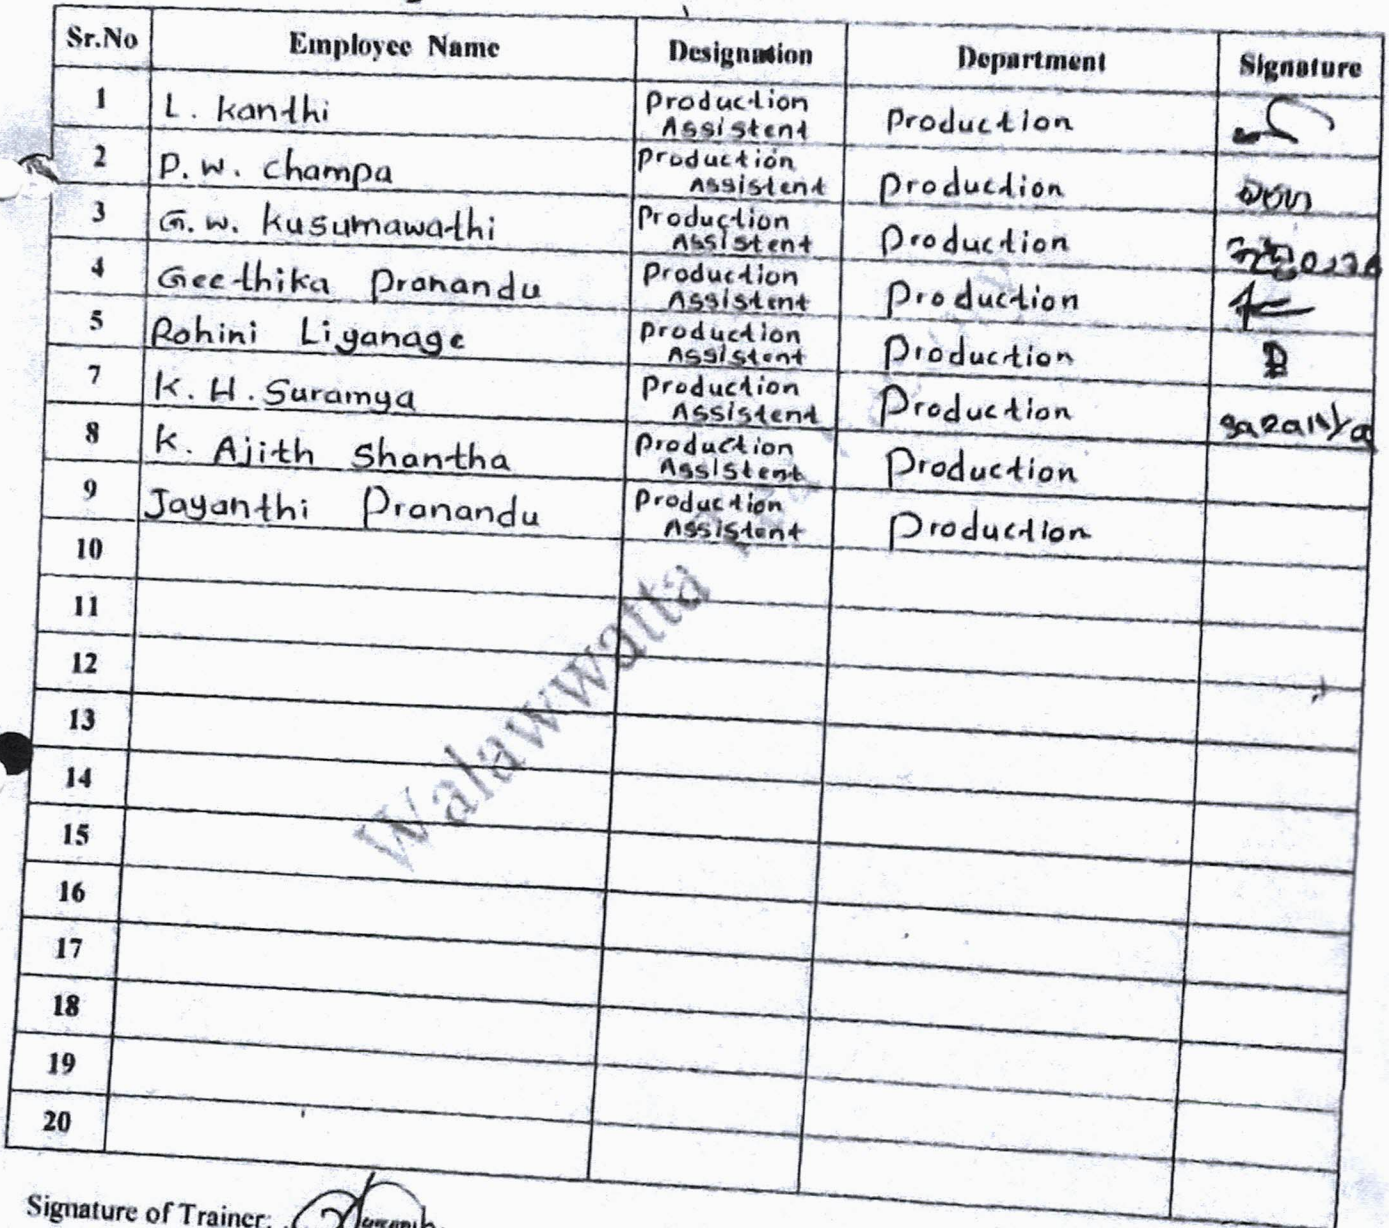 Sr.No Employee Name Designation Department Signature
1 L. Kanthi Production Assistent Production
2 P. W. Champa Production Assistent Production
3 G. W. Kusumawathi Production Assistent Production
4 Geethika Pranandu Production Assistent Production
5 Rohini Liyanage Production Assistent Production
7 K. H. Suramya Production Assistent Production
8 K. Ajith Shantha Production Assistent Production
9 Jayanthi Pranandu Production Assistent Production
10
11
12
13
14
15
16
17
18
19
20
Walawwatta
Signature of Trainer: